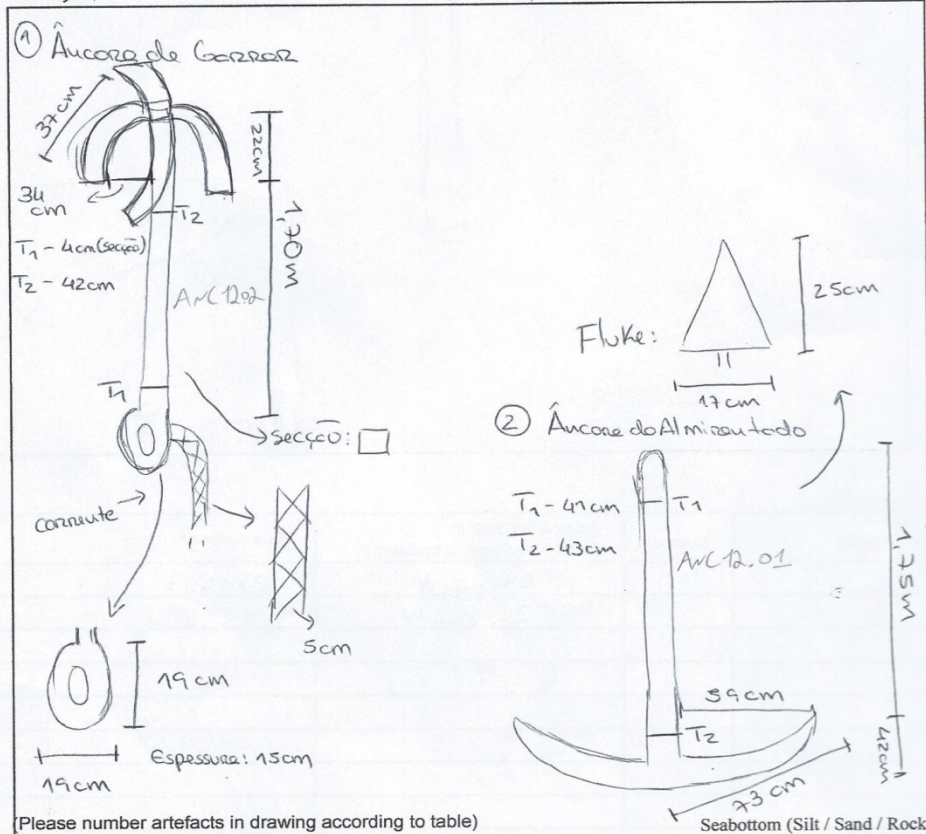 ① Âncora de Garrar
37cm
22cm
34
cm
T2
1,70m
T1 - 4cm (secção)
T2 - 42cm
ANC 12.02
T1
Secção:
corrente
5cm
19cm
19cm
Espessura: 15cm
Fluke:
25cm
17cm
② Âncora do Almirantado
T1 - 41cm
T1
T2 - 43cm
ANC 12.01
1,75m
59cm
T2
42cm
73 cm
(Please number artefacts in drawing according to table)
Seabottom (Silt / Sand / Rock